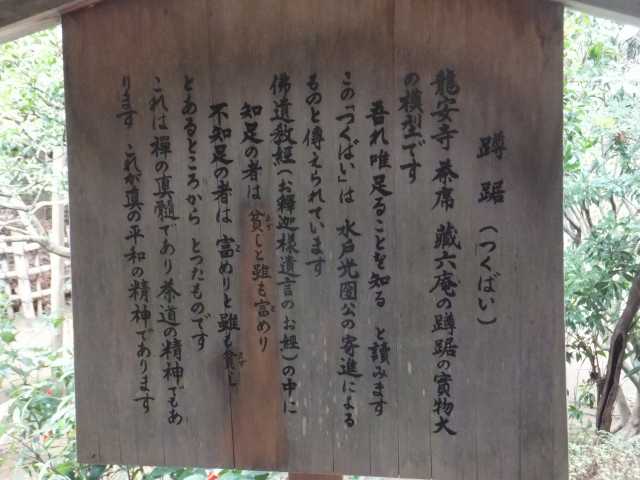 蹲踞（つくばい）
龍安寺 茶席 藏六庵の蹲踞の實物大
の模型です
吾れ唯足ることを知る と讀みます
この「つくばい」は 水戸光圀公の寄進による
ものと傳えられています
佛遺教經（お釋迦様遺言のお經）の中に
知足の者は 貧しと雖も富めり
不知足の者は 富めりと雖も貧し
とあるところから とつたものです
これは禪の眞髓であり茶道の精神でもあ
ります これが真の平和の精神であります